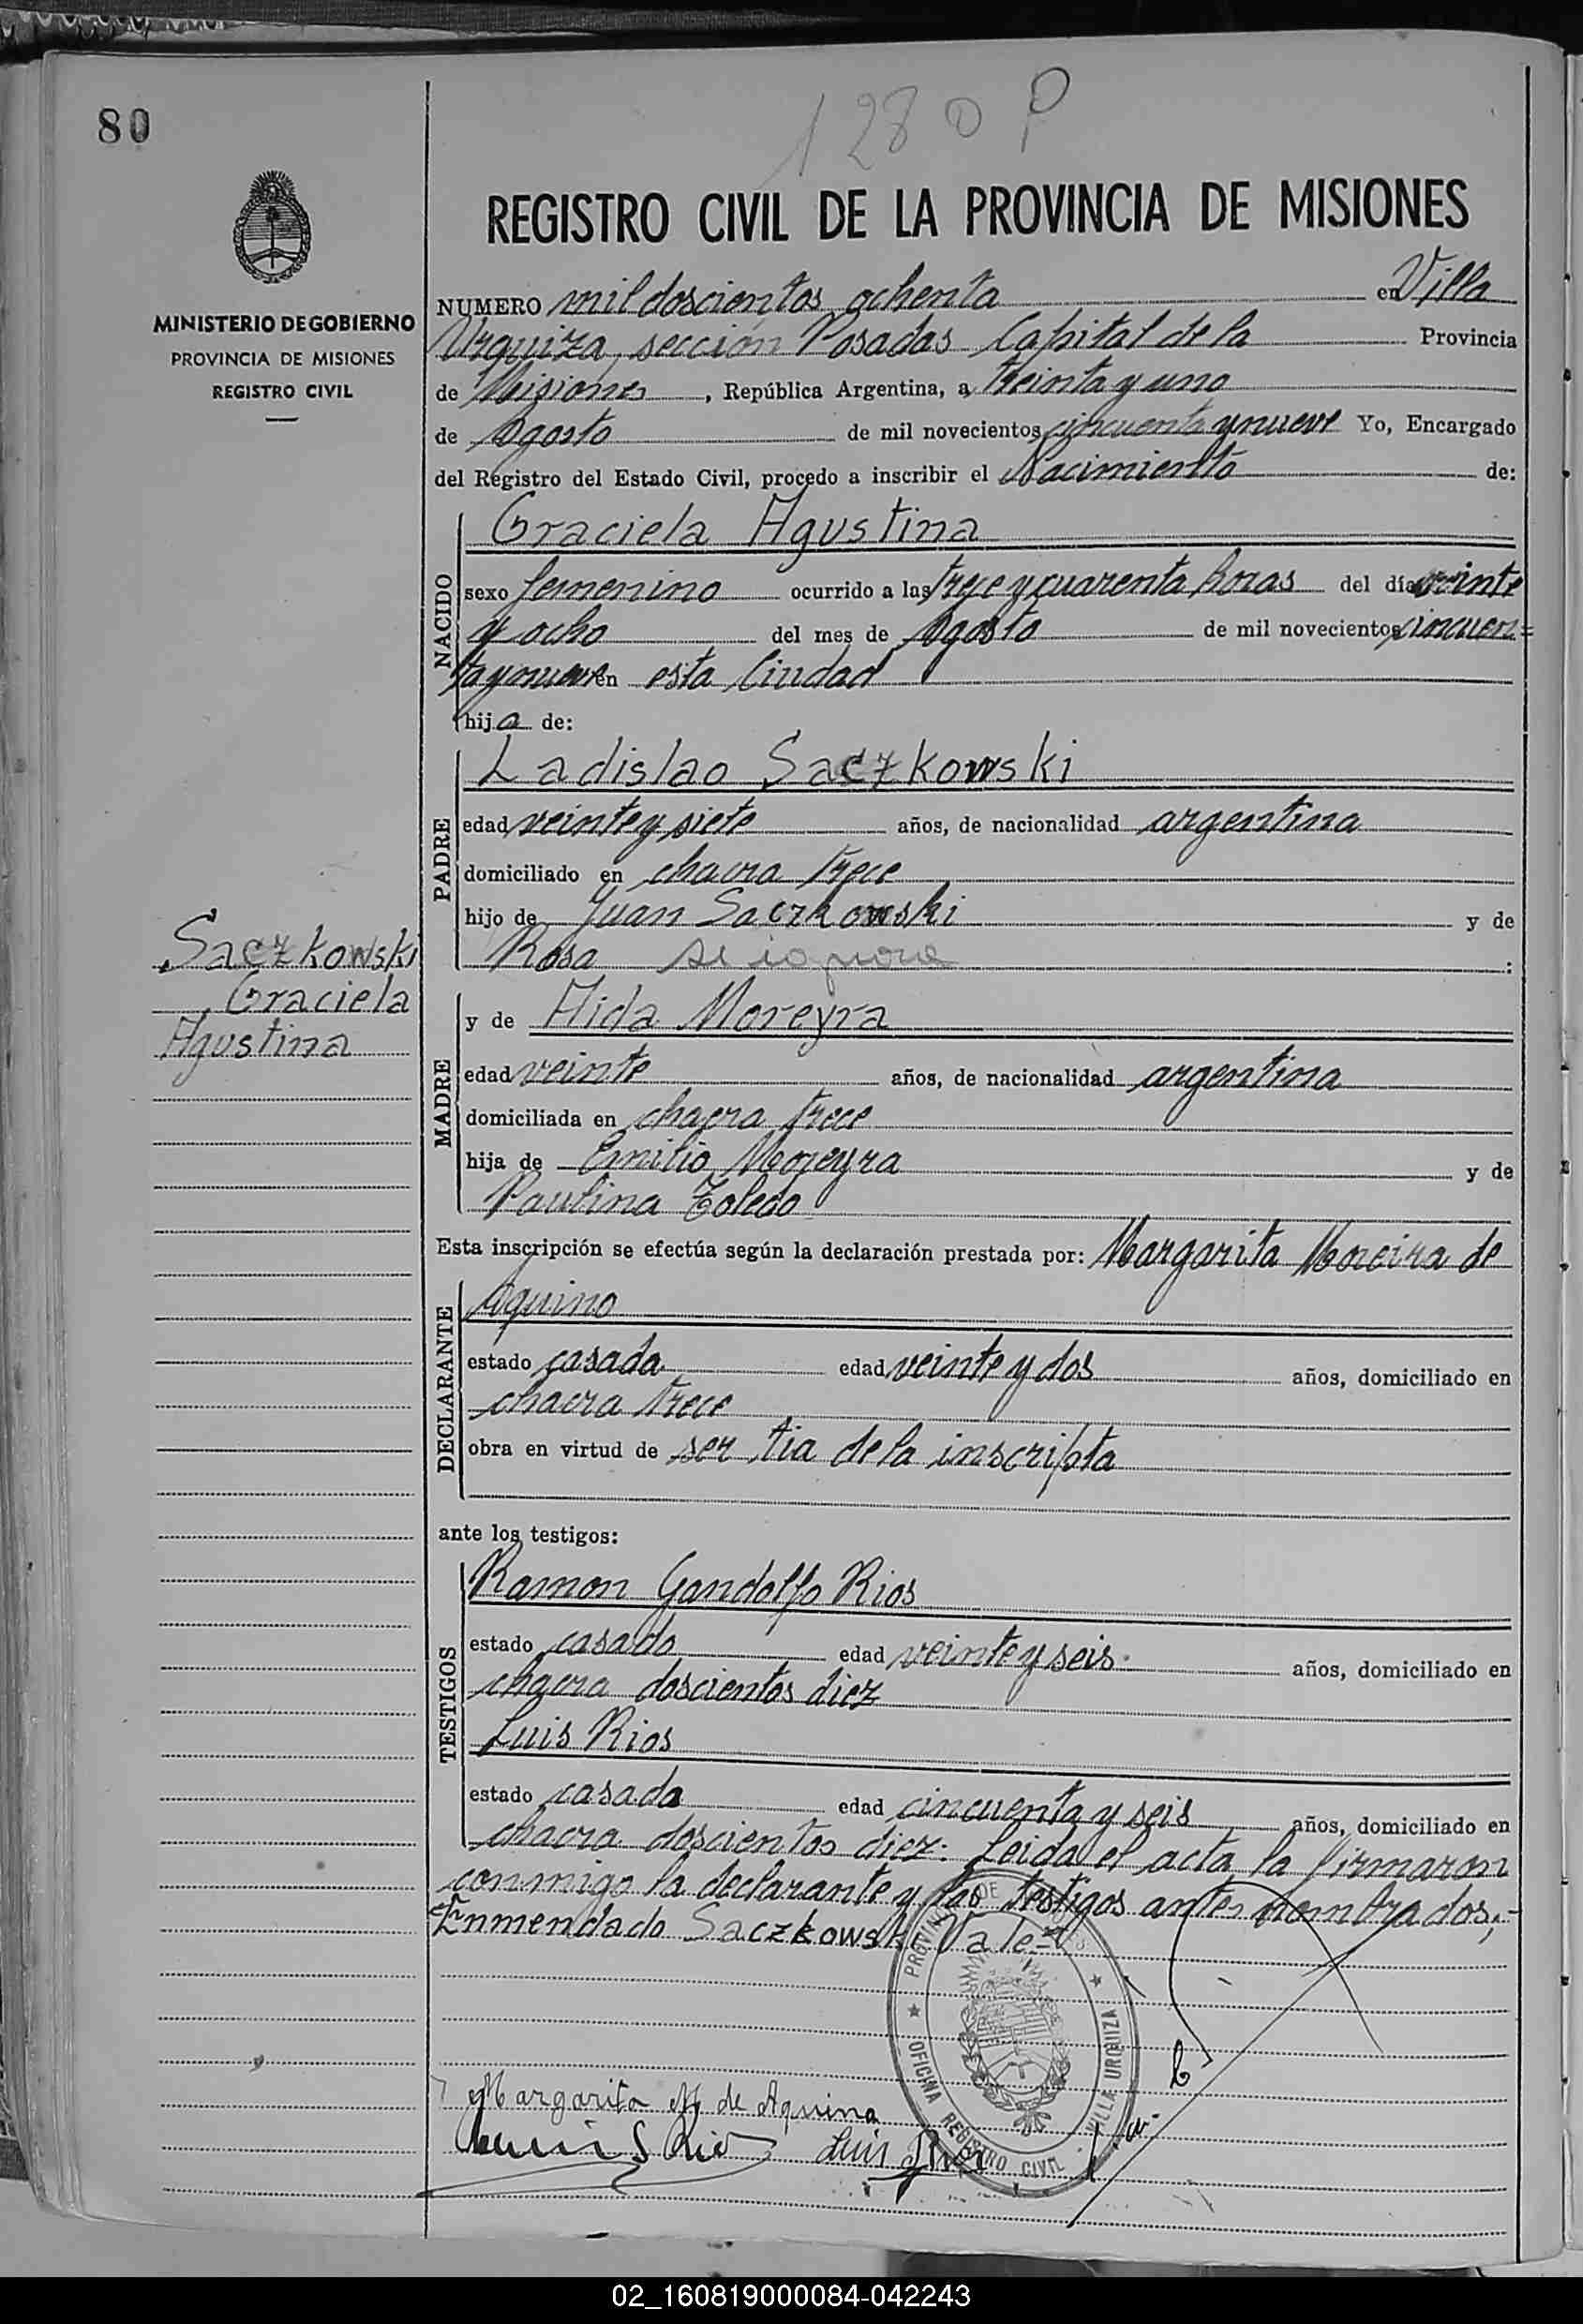 80
1280 P
MINISTERIO DE GOBIERNO
PROVINCIA DE MISIONES
REGISTRO CIVIL
REGISTRO CIVIL DE LA PROVINCIA DE MISIONES
NUMERO mil doscientos ochenta en Villa
Urquiza, sección Posadas Capital de la Provincia
de Misiones, República Argentina, a treinta y uno
de Agosto de mil novecientos cincuenta y nueve Yo, Encargado
del Registro del Estado Civil, procedo a inscribir el Nacimiento de:
NACIDO
Graciela Agustina
sexo femenino ocurrido a las trece y cuarenta horas del día veinte
y ocho del mes de Agosto de mil novecientos cincuen=
ta y nueve en esta Ciudad
hija de:
PADRE
Ladislao Saczkowski
edad veinte y siete años, de nacionalidad argentina
domiciliado en chacra trece
hijo de Juan Saczkowski y de
Rosa se ignora :
Saczkowski
Graciela
Agustina
MADRE
y de Aida Moreyra
edad veinte años, de nacionalidad argentina
domiciliada en chacra trece
hija de Emilio Moreyra y de
Paulina Toledo
Esta inscripción se efectúa según la declaración prestada por: Margarita Moreira de
DECLARANTE
Aquino
estado casada edad veinte y dos años, domiciliado en
chacra trece
obra en virtud de ser tia de la inscripta
ante los testigos:
TESTIGOS
Ramon Gandolfo Rios
estado casado edad veinte y seis. años, domiciliado en
chacra doscientos diez
Luis Rios
estado casado edad cincuenta y seis años, domiciliado en
chacra doscientos diez: Leida el acta la firmaron
conmigo la declarante y los testigos antes nombrados;-
Enmendado Saczkowski Vale-
PROVINCIA DE MISIONES
OFICINA REGISTRO CIVIL
VILLA URQUIZA
Margarita M de Aquino
Luis Rios
02_160819000084-042243